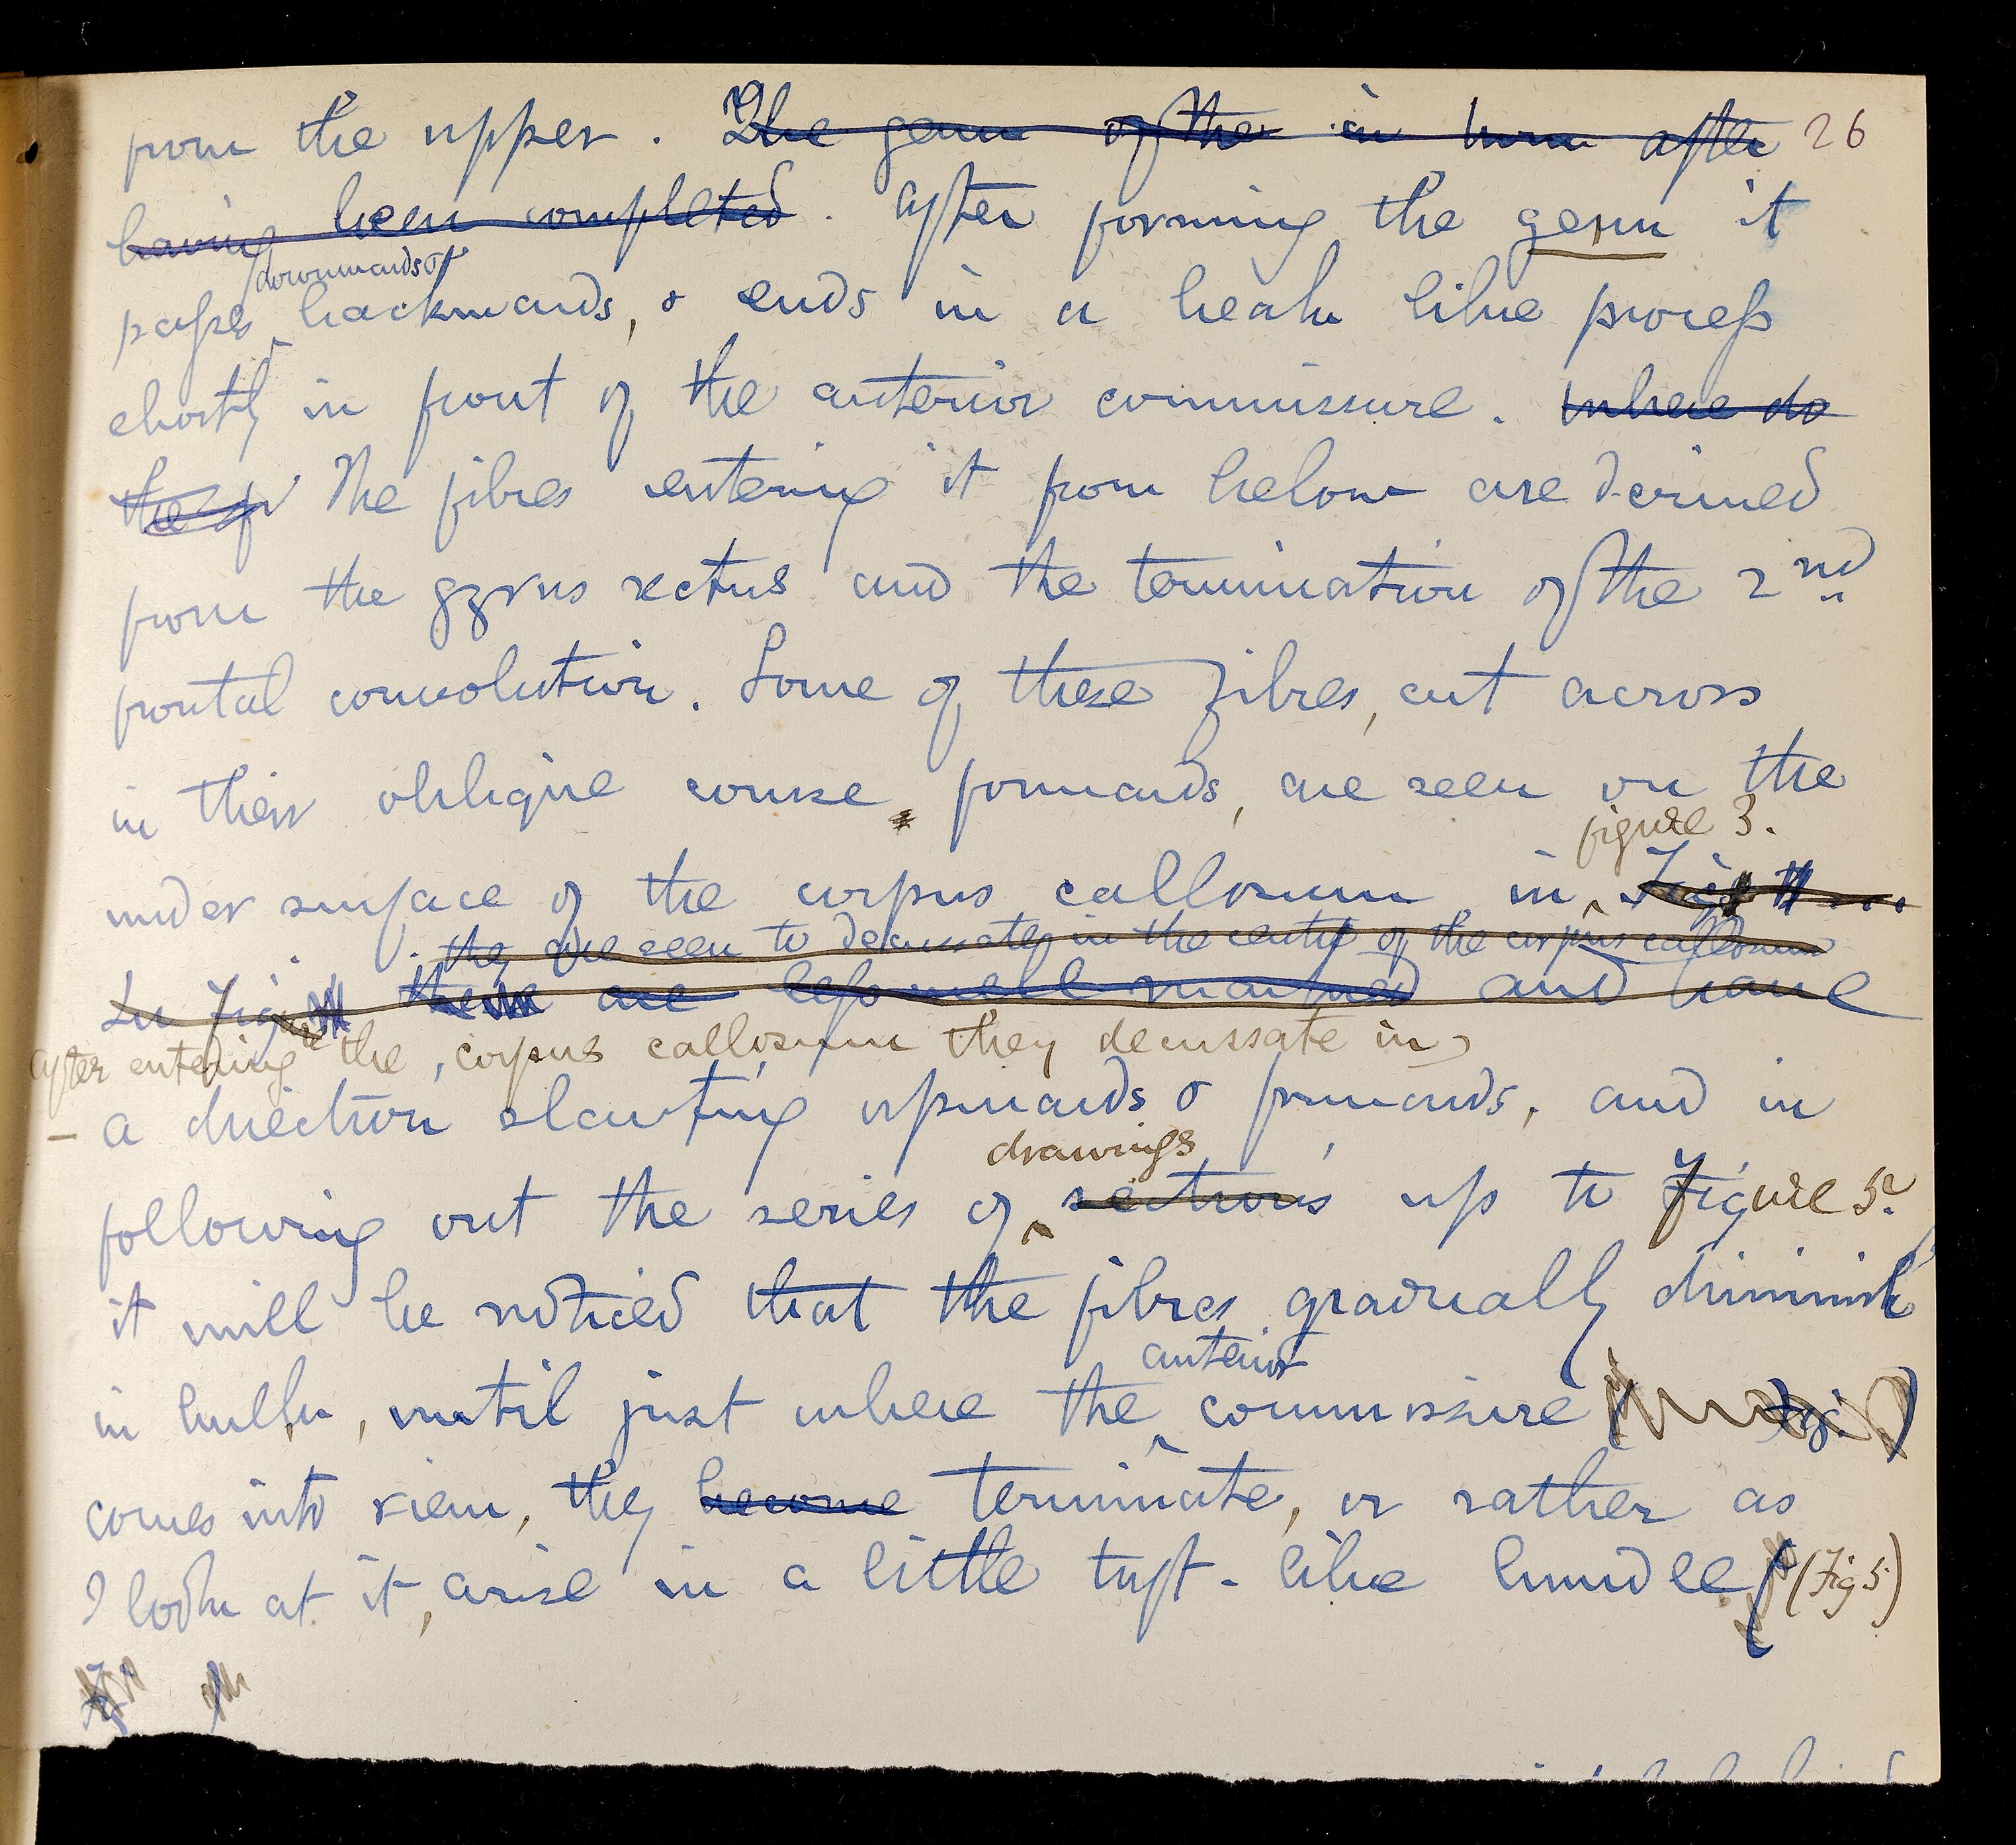 from the upper. The genu of the in turn after 26
having been completed. After forming the genu it
downwards &
passes backwards, & ends in a beak like process
shortly in front of the anterior commissure. Where do
the The fibres entering it from below are derived
from the gyrus rectus and the termination of the 2nd
frontal convolution. Some of these fibres, cut across
in their oblique course forwards, are seen on the
figure 3.
under surface of the corpus callosum in Fig
they are seen to decussate in the centre of the corpus callosum
In Fig these are less well marked and have
after entering the corpus callosum they decussate in
– a direction slanting upwards & forwards, and in
drawings
following out the series of sections up to Figure 5.
it will be noticed that the fibres gradually diminish
anterior
in bulk, until just where the commissure
comes into view, they become terminate, or rather as
I look at it, arise in a little tuft-like bundle (Fig 5)